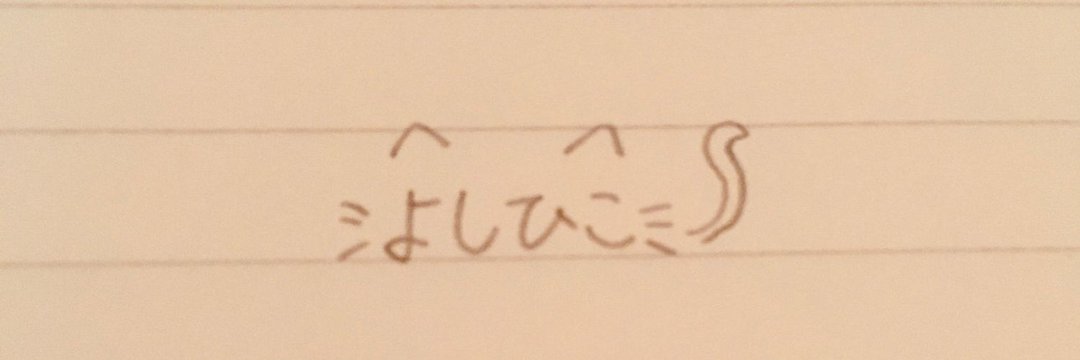 よしひこ